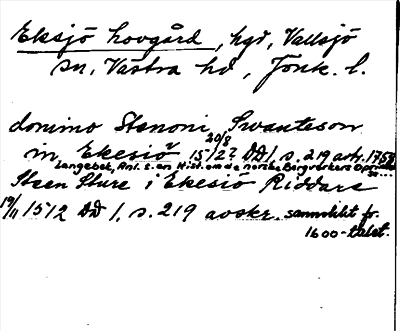 Eksjö hovgård, hgd, Vallsjö
sn, Västra hd, Jönk. l.
domino Stenoni Swanteson
in Ekesiö 20/8 1512? DD 1, s. 219 avskr. 1758
Langebek, Anl. t. en Hist. om de norske Bergverkers
Steen Sture i Ekesiö Riddare
19/11 1512 DD 1, s. 219 avskr. sannolikt fr.
1600-talet.